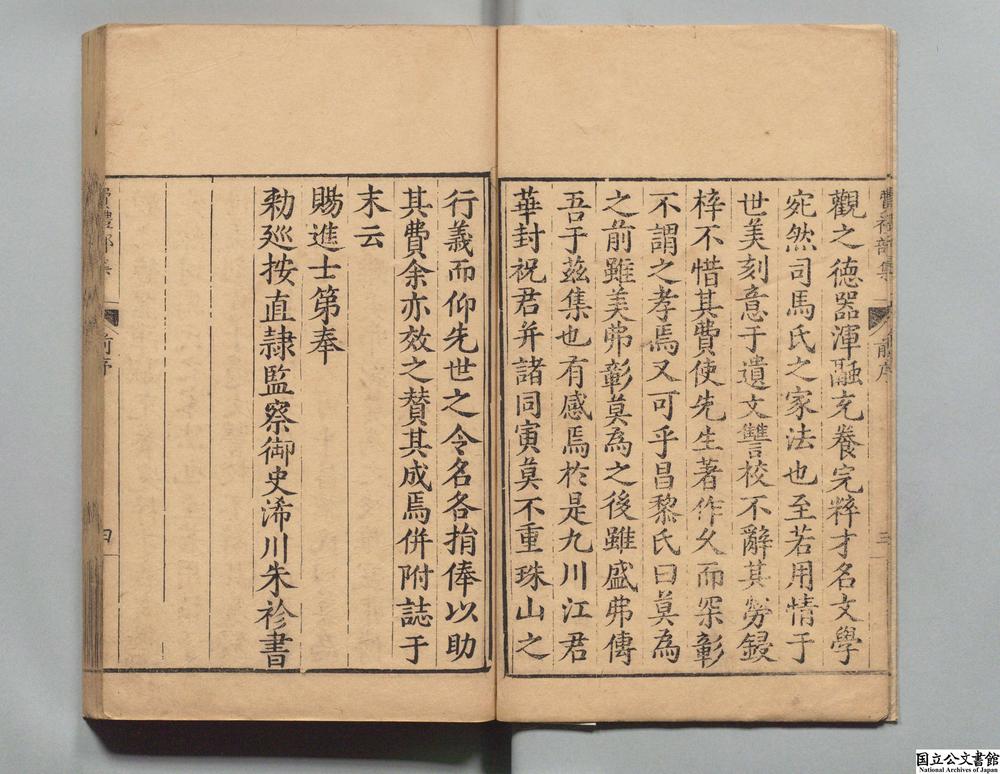 觀之德器渾融充養完粹才名文學
宛然司馬氏之家法也至若用情于
世美刻意于遺文讐校不辭其勞鋟
梓不惜其費使先生著作久而罙彰
不謂之孝焉又可乎昌黎氏曰莫為
之前雖美弗彰莫為之後雖盛弗傳
吾于茲集也有感焉於是九川江君
華封祝君并諸同寅莫不重珠山之
費禮部集
前序
三
行義而仰先世之令名各捐俸以助
其費余亦效之賛其成焉併附誌于
末云
賜進士第奉
勑廵按直隷監察御史浠川朱袗書
費禮部集
前序
四
国立公文書館
National Archives of Japan